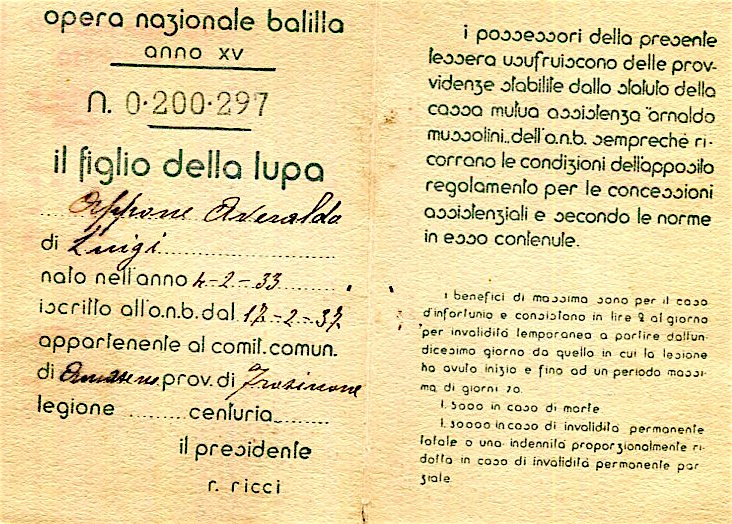 opera nazionale balilla
anno xv
n. 0·200·297
il figlio della lupa
Averaldo
di Luigi
nato nell'anno 4-2-33
iscritto all'o.n.b. dal 17-2-37
appartenente al comit. comun.
di Amaseno prov. di Frosinone
legione centuria
il presidente
r. ricci
i possessori della presente
tessera usufruiscono delle prov-
videnze stabilite dallo statuto della
cassa mutua assistenza "arnaldo
mussolini„ dell'o.n.b. sempreché ri-
corrano le condizioni dell'apposito
regolamento per le concessioni
assistenziali e secondo le norme
in esso contenute.
i benefici di massima sono per il caso
d'infortunio e consistono in lire 2 al giorno
per invalidità temporanea a partire dall'un-
dicesimo giorno da quello in cui la lesione
ha avuto inizio e fino ad un periodo massi-
ma di giorni 70.
l. 5000 in caso di morte
l. 30000 in caso di invalidità permanente
totale o una indennità proporzionalmente ri-
dotta in caso di invalidità permanente par
ziale